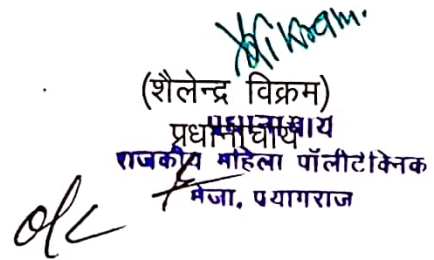 Vikram.
(शैलेन्द्र विक्रम)
प्रधानाचार्य
प्रधानाचार्य
राजकीय महिला पॉलीटेक्निक
मेजा, प्रयागराज
o/c